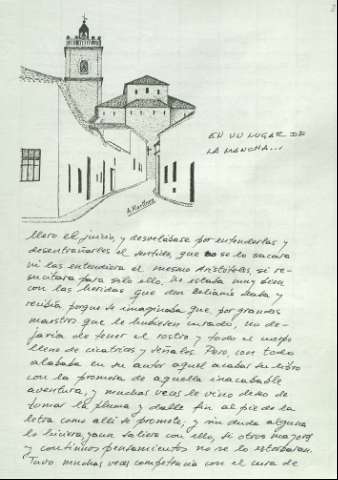 EN UN LUGAR DE
LA MANCHA...
A. Martínez
llero el juicio, y desvelábase por entenderlas y
desentrañarles el sentido, que no se lo sacara
ni las entendiera el mesmo Aristóteles, si re-
sucitara para sólo ello. No estaba muy bien
con las heridas que don Belianís daba y
recibía, porque se imaginaba que, por grandes
maestros que le hubiesen curado, no de-
jaría de tener el rostro y todo el cuerpo
lleno de cicatrices y señales. Pero, con todo
alababa en su autor aquel acabar su libro
con la promesa de aquella inacabable
aventura, y muchas veces le vino deseo de
tomar la pluma y dalle fin al pie de la
letra como allí se promete; y sin duda alguna
lo hiciera, y aun saliera con ello, si otros mayores
y continuos pensamientos no se lo estorbaran.
Tuvo muchas veces competencia con el cura de